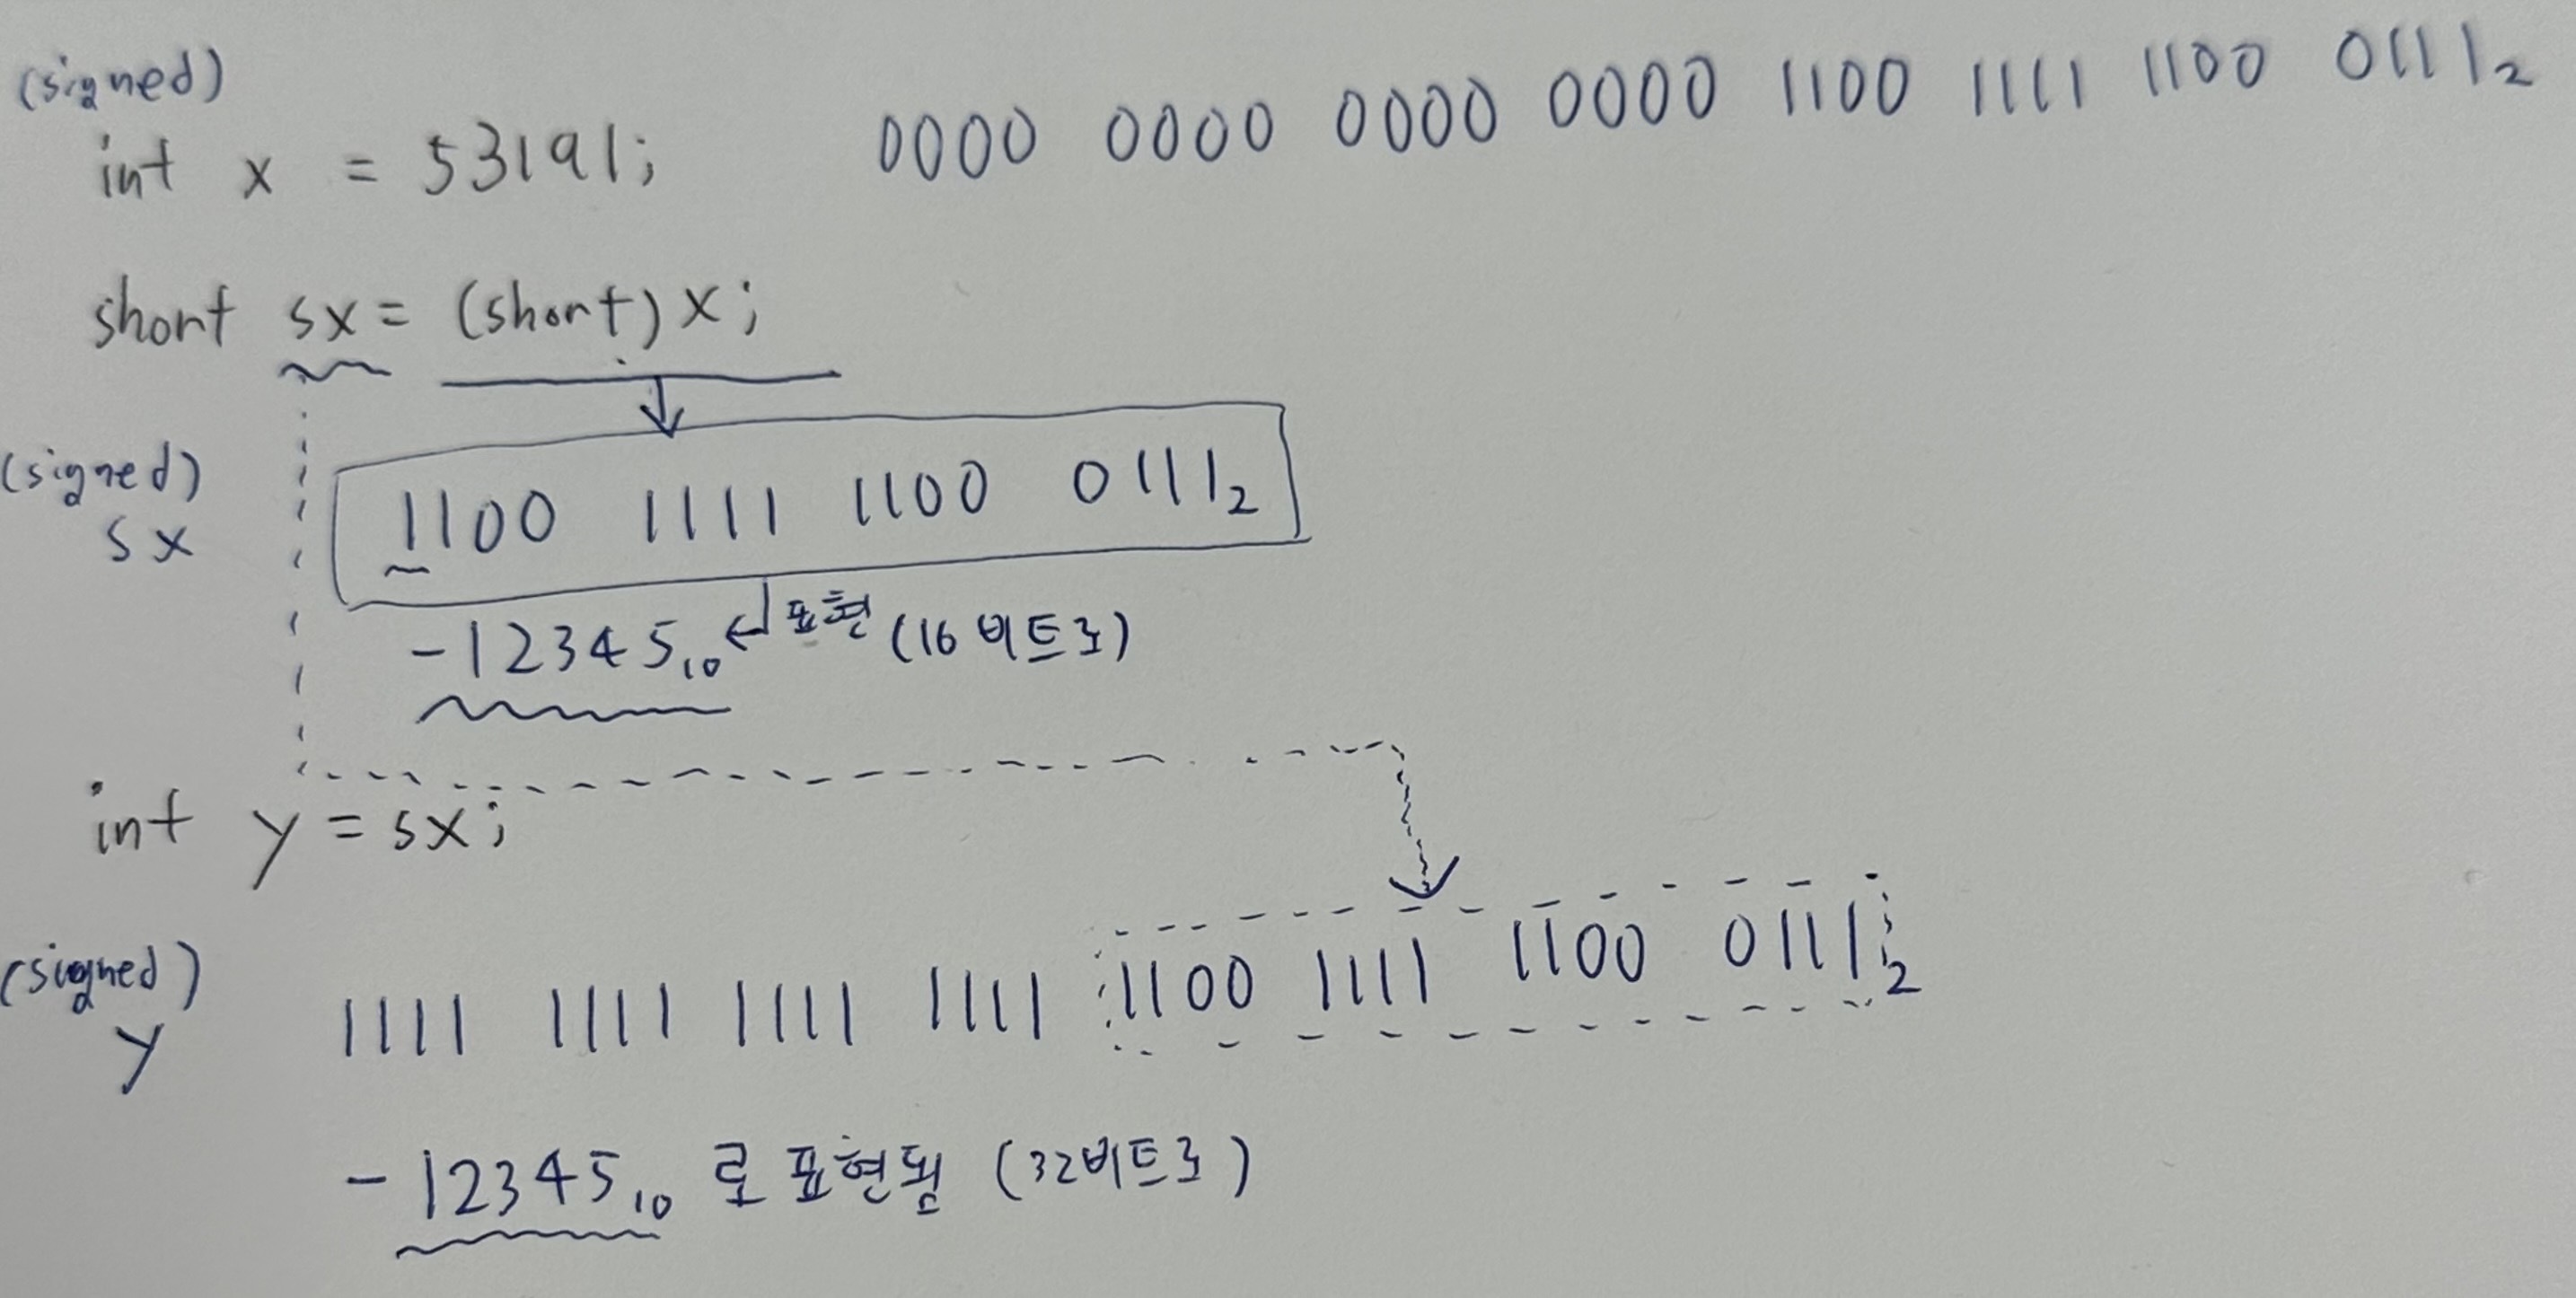 (signed)
int x = 53191; 0000 0000 0000 0000 1100 1111 1100 0111₂
short sx = (short) x;
(signed)
sx 1100 1111 1100 0111₂
-12345₁₀ ← 표현 (16비트로)
int y = sx;
(signed)
y 1111 1111 1111 1111 1100 1111 1100 0111₂
-12345₁₀ 로 표현됨 (32비트로)